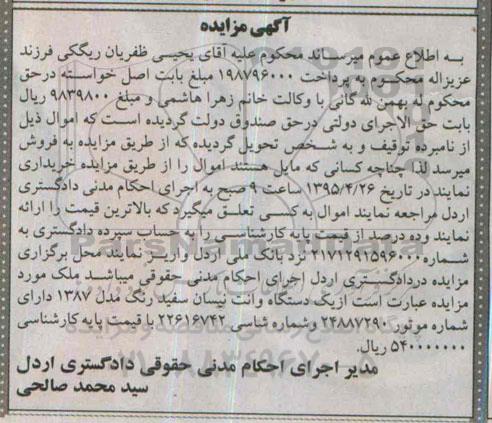 آگهی مزایده
به اطلاع عموم میرساند محکوم علیه آقای یحیی ظفریان ریگکی فرزند
عزیزاله محکوم به پرداخت ۱۹۸۷۹۶۰۰۰ مبلغ بابت اصل خواسته درحق
محکوم له بهمن لله گانی با وکالت خانم زهرا هاشمی و مبلغ ۹۸۳۹۸۰۰ ریال
بابت حق الاجرای دولتی درحق صندوق دولت گردیده است که اموال ذیل
از نامبرده توقیف و به شخص تحویل گردیده که از طریق مزایده به فروش
میرسد لذا چناجه کسانی که مایل هستند اموال را از طریق مزایده خریداری
نمایند در تاریخ ۱۳۹۵/۴/۲۶ ساعت ۹ صبح به اجرای احکام مدنی دادگستری
اردل مراجعه نمایند اموال به کسی تعلق میگیرد که بالاترین قیمت را ارائه
نمایند وده درصد از قیمت پایه کارشناسی را به حساب سپرده دادگستری به
شماره ۲۱۷۱۲۹۱۵۹۶۰۰۰ نزد بانک ملی اردل واریز نمایند محل برگزاری
مزایده دردادگستری اردل اجرای احکام مدنی حقوقی میباشد ملک مورد
مزایده عبارت است ازیک دستگاه وانت نیسان سفید رنگ مدل ۱۳۸۷ دارای
شماره موتور ۲۴۸۸۷۲۹۰ وشماره شاسی ۲۲۶۱۶۷۴۲ با قیمت پایه کارشناسی
۵۴۰۰۰۰۰۰۰ ریال.
مدیر اجرای احکام مدنی حقوقی دادگستری اردل
سید محمد صالحی
ParsNamadData